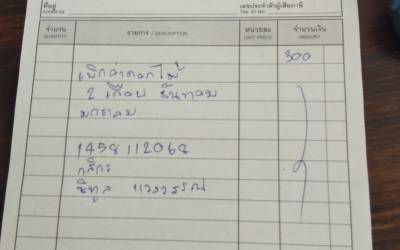 ที่อยู่ ADDRESS เลขประจำตัวผู้เสียภาษี TAX ID No.
จำนวน QUANTITY รายการ / DESCRIPTION หน่วยละ UNIT PRICE จำนวนเงิน AMOUNT
300
เบิกค่าดอกไม้
2 เดือน ธันวาคม
มกราคม
1458112068
กสิกร